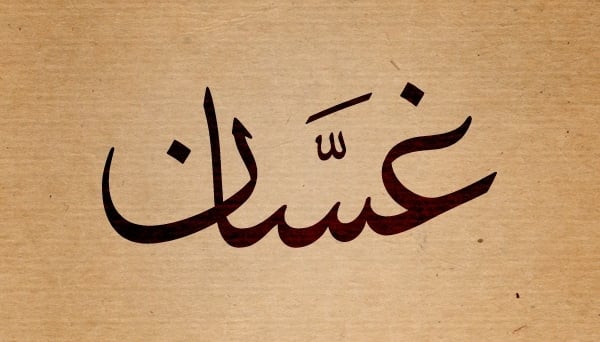 غسَّان